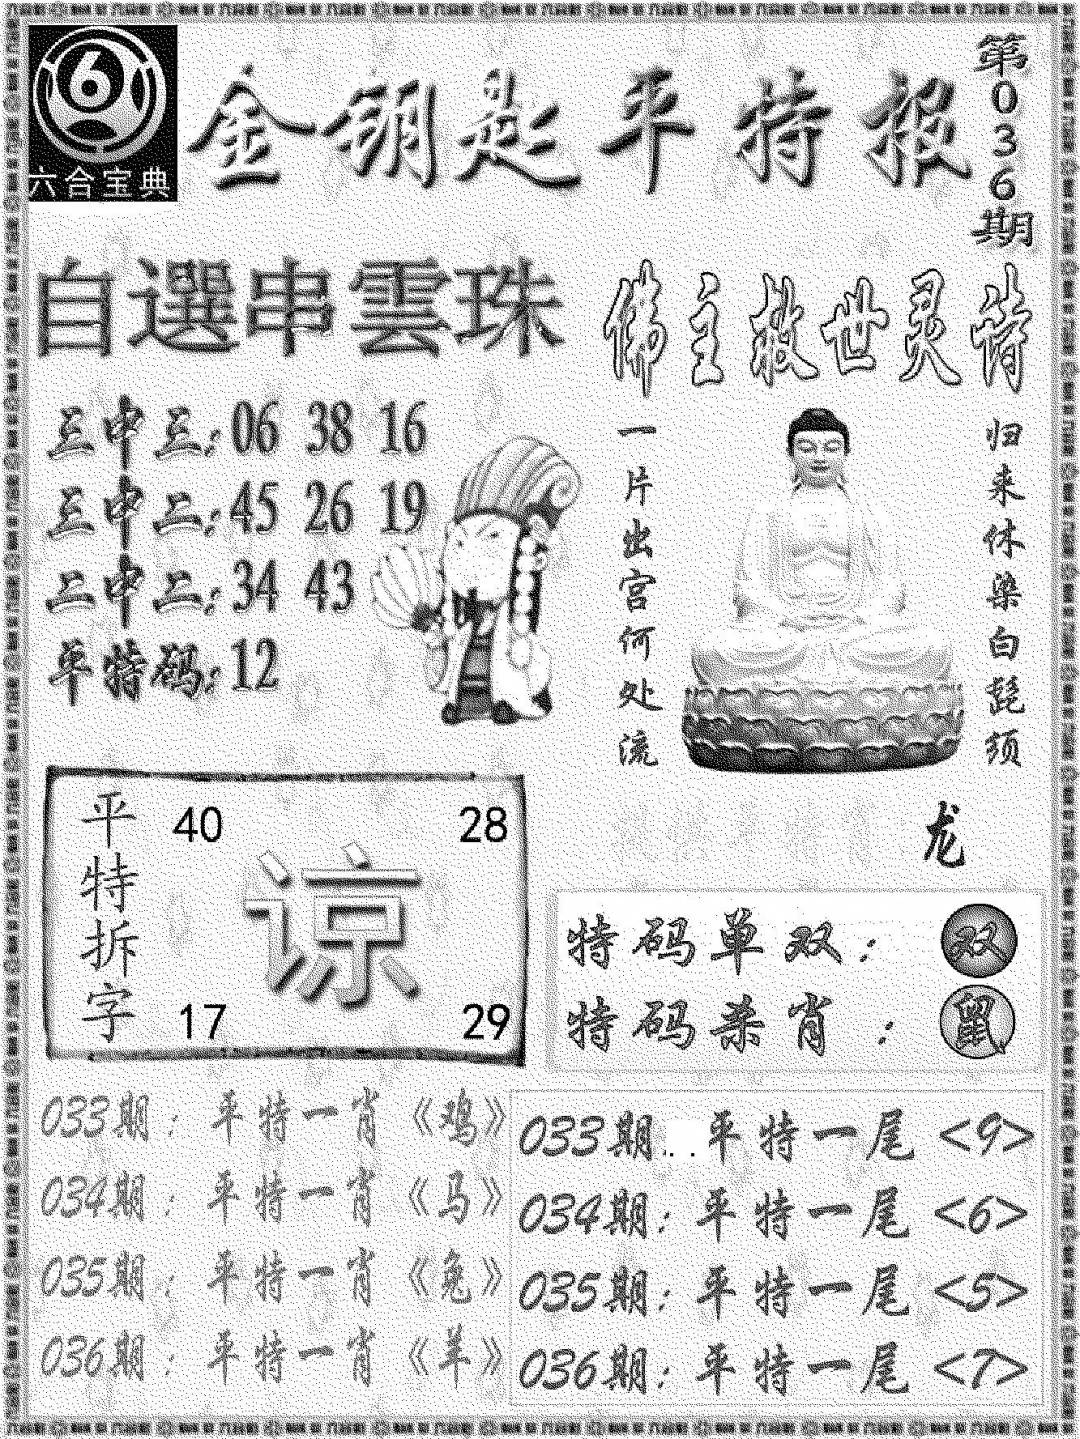 六合宝典
金钥匙平特报
第036期
自選串雲珠
三中三:06 38 16
三中二:45 26 19
二中二:34 43
平特码:12
佛主救世灵诗
一片出宫何处流
归来休染白髭须
龙
平特拆字
40 28
谅
17 29
特码单双: 双
特码杀肖: 鼠
033期: 平特一肖《鸡》
034期: 平特一肖《马》
035期: 平特一肖《兔》
036期: 平特一肖《羊》
033期...平特一尾<9>
034期:平特一尾<6>
035期:平特一尾<5>
036期:平特一尾<7>